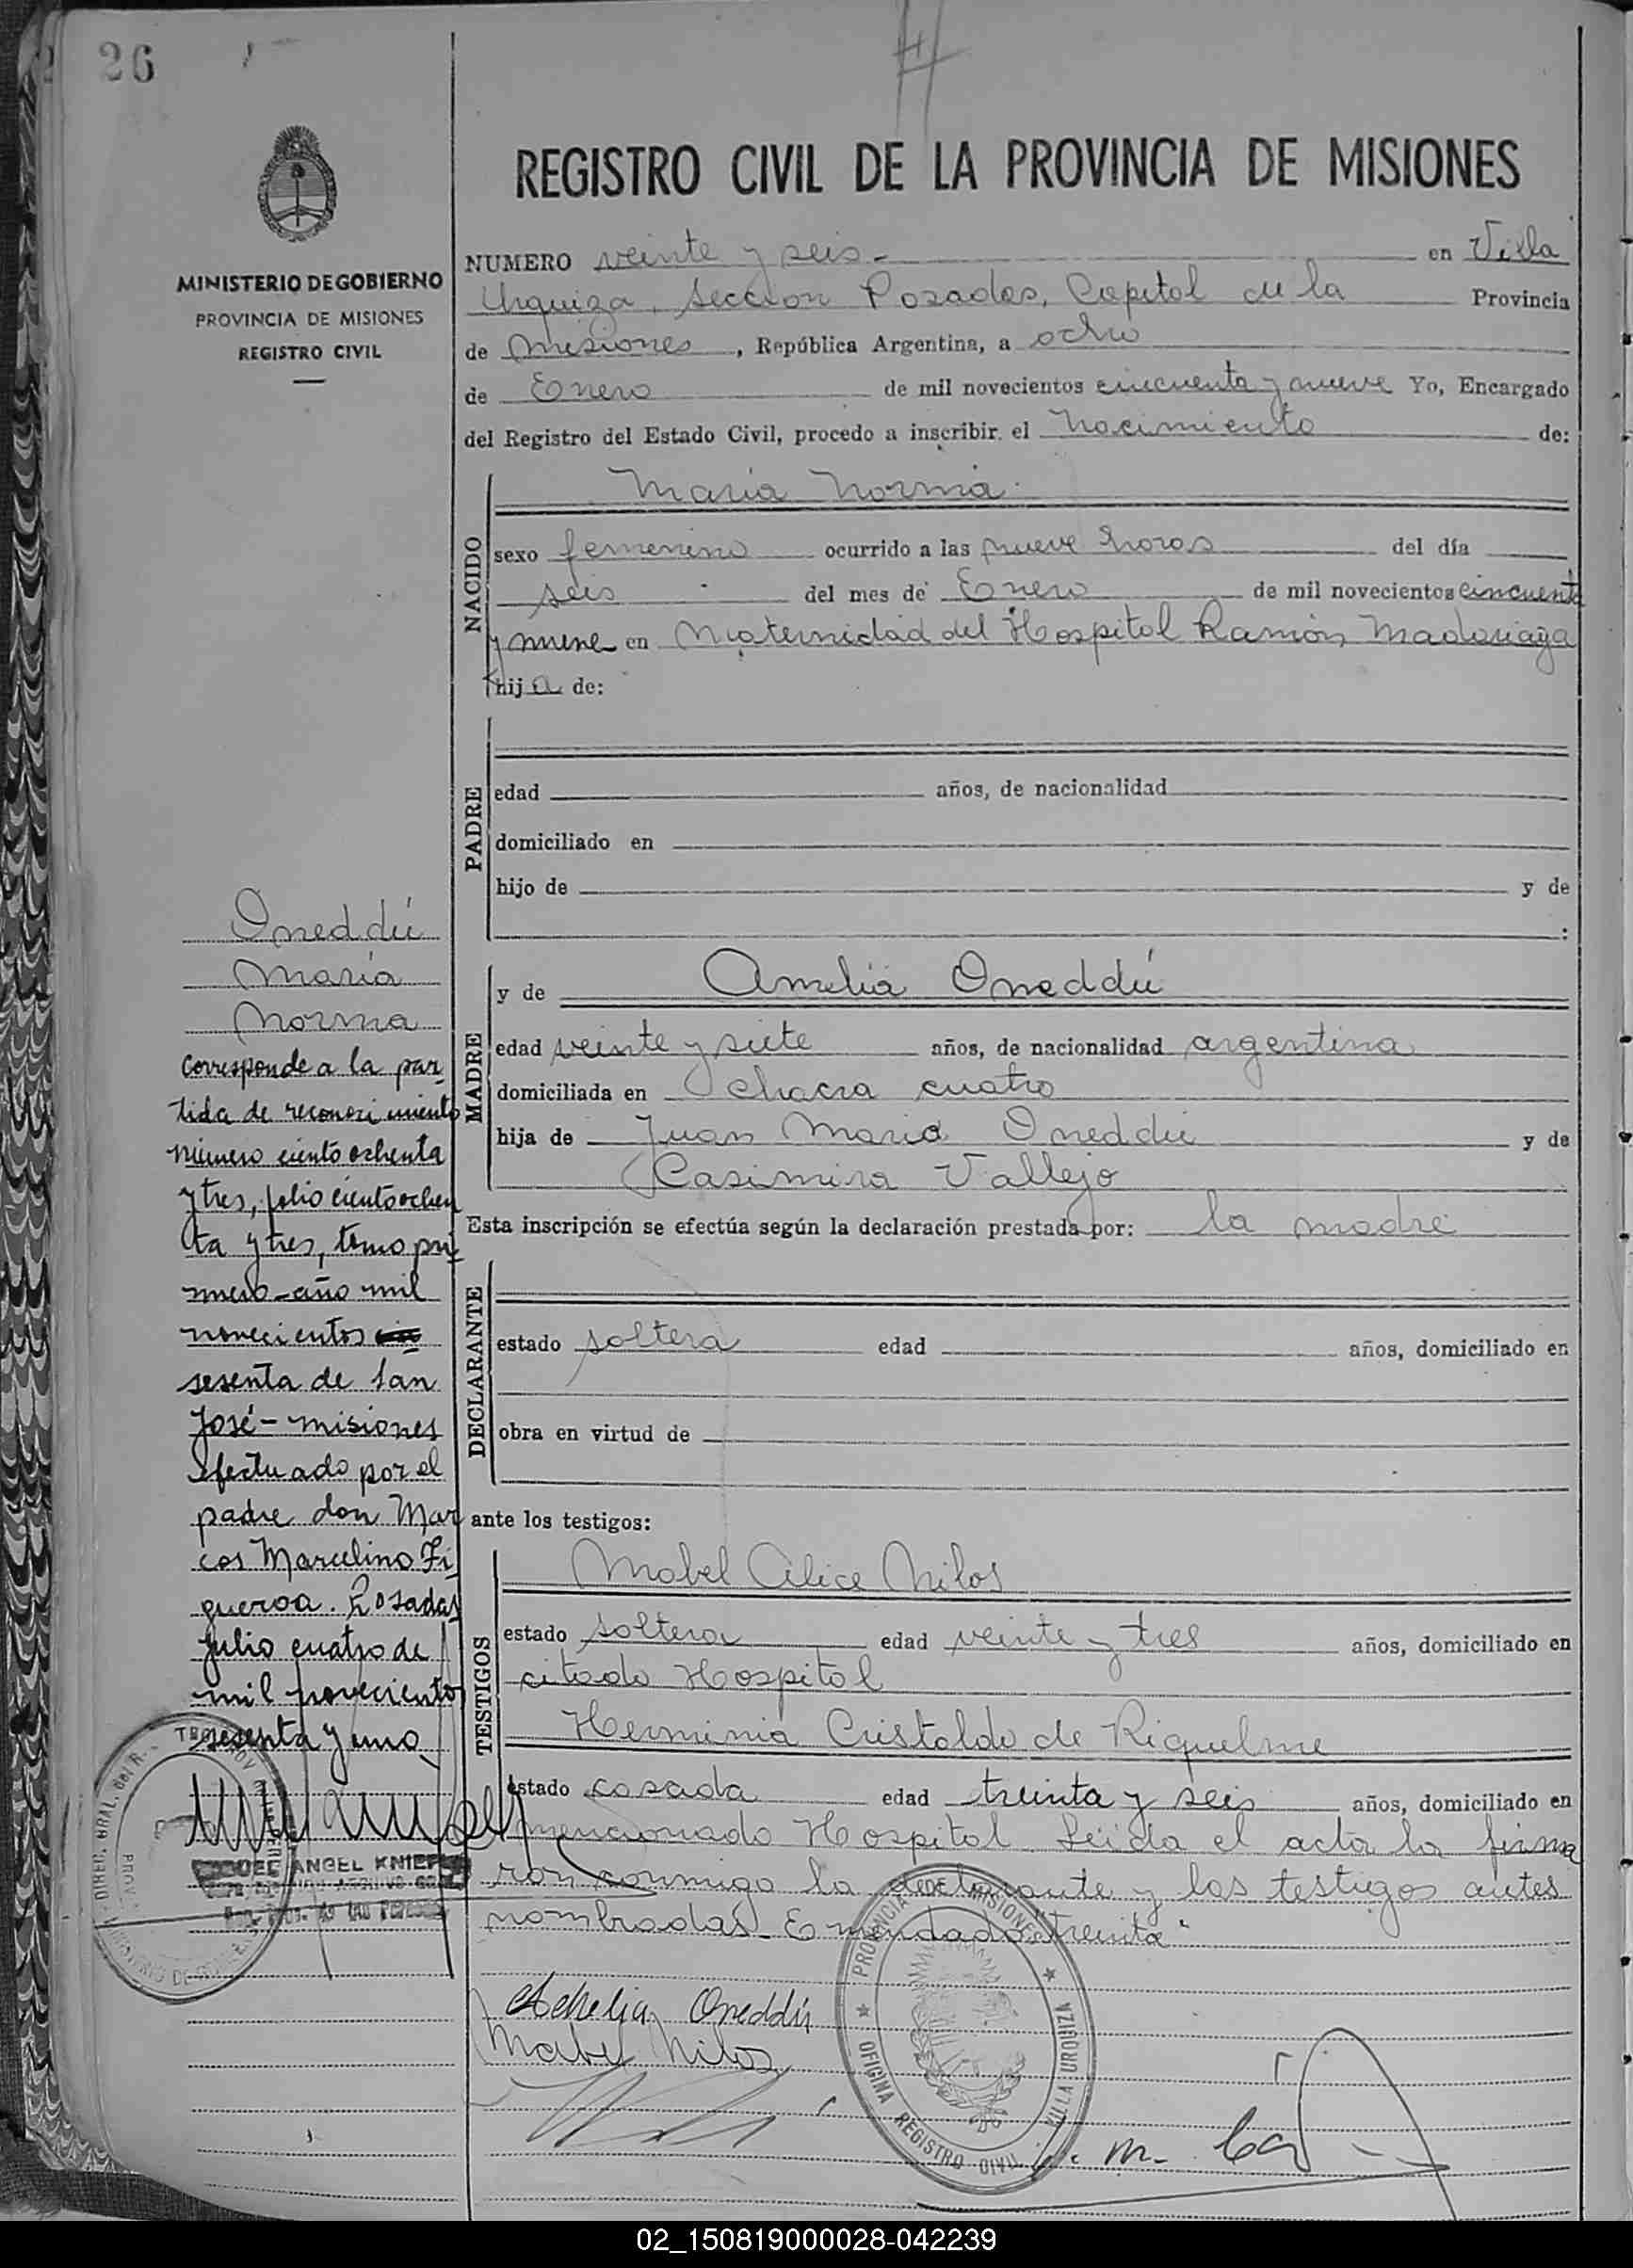 26
MINISTERIO DE GOBIERNO
PROVINCIA DE MISIONES
REGISTRO CIVIL
REGISTRO CIVIL DE LA PROVINCIA DE MISIONES
NUMERO veinte y seis.- en Villa
Urquiza, Sección Posadas, Capital de la Provincia
de Misiones, República Argentina, a ocho
de Enero de mil novecientos cincuenta y nueve Yo, Encargado
del Registro del Estado Civil, procedo a inscribir el Nacimiento de:
NACIDO
María Norma
sexo femenino ocurrido a las nueve horas del día
seis del mes de Enero de mil novecientos cincuenta
y nueve en Maternidad del Hospital Ramón Madariaga
hija de:
PADRE
edad años, de nacionalidad
domiciliado en
hijo de y de
:
MADRE
y de Amelia Oneddú
edad veinte y siete años, de nacionalidad argentina
domiciliada en chacra cuatro
hija de Juan Mario Oneddú y de
Casimira Vallejo
Esta inscripción se efectúa según la declaración prestada por: la madre
DECLARANTE
estado soltera edad años, domiciliado en
obra en virtud de
ante los testigos:
TESTIGOS
Mabel Alice Nilos
estado soltera edad veinte y tres años, domiciliado en
citado Hospital
Herminia Cristaldo de Riquelme
estado casada edad treinta y seis años, domiciliado en
mencionado Hospital. Leída el acta la firma
ron conmigo la declarante y los testigos antes
nombradas. Enmendado "treinta"
Amelia Oneddú
Mabel Nilos
PROVINCIA DE MISIONES
OFICINA REGISTRO CIVIL
VILLA URQUIZA
Oneddú
María
Norma
corresponde a la par
tida de reconocimiento
número ciento ochenta
y tres, folio ciento ochen
ta y tres, tomo pri
mero - año mil
novecientos
sesenta de San
José - misiones
efectuado por el
padre don Mar
cos Marcelino Fi
gueroa. Posadas
julio cuatro de
mil novecientos
sesenta y uno
ANGEL KNIEF
02_150819000028-042239